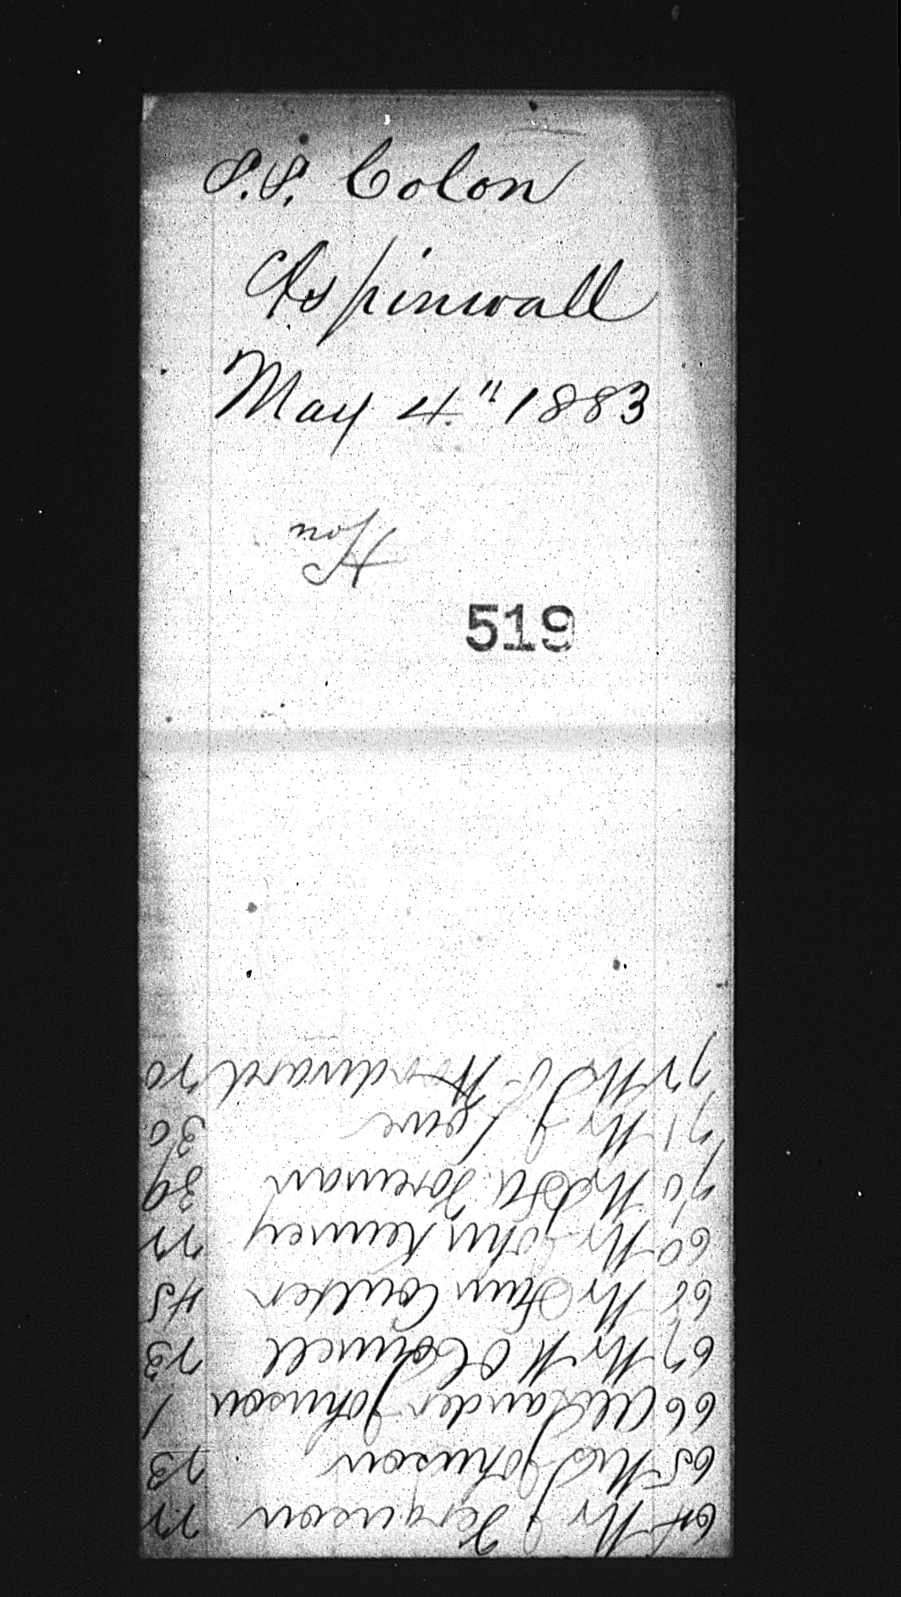 S.S. Colon
Aspinwall
May 4." 1883
519
64 Mr J Ferguson 22
65 Mrs Johnson 23
66 Alexander Johnson 1
67 Mr M O Connell 23
68 Mr Saml Coulter 45
69 Mr John Kenney 22
70 Foreman 39
71 Mr J Lowe 30
72 Woodward 20